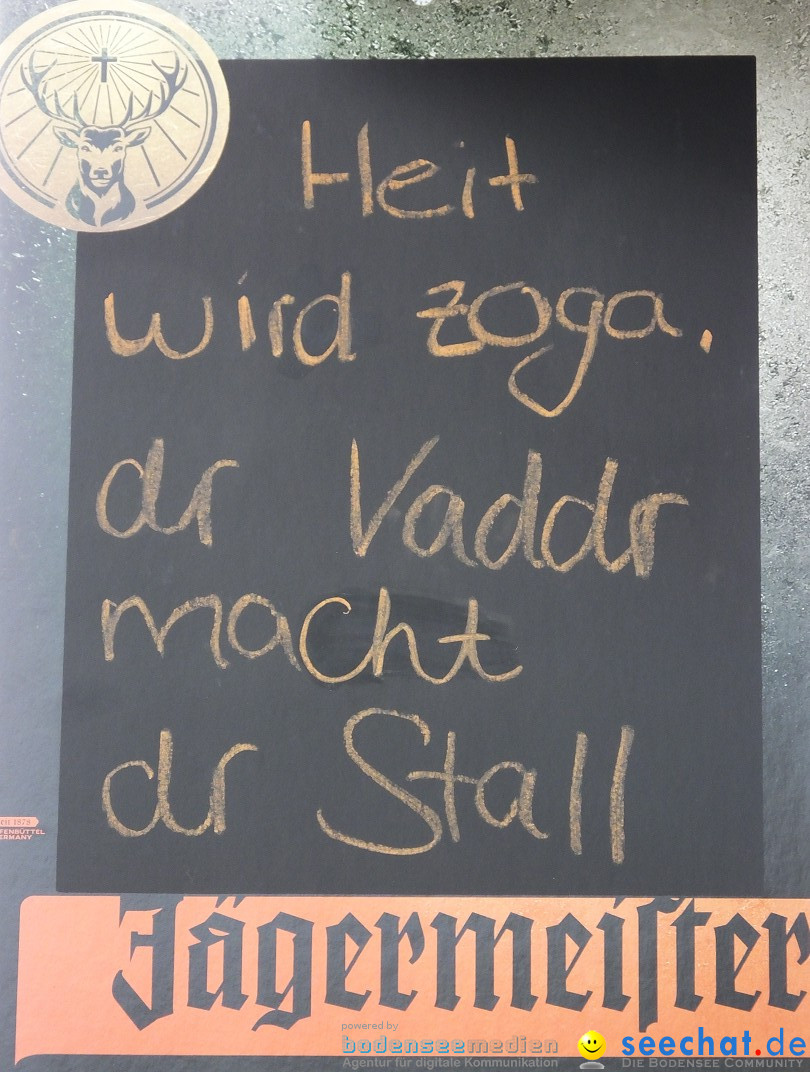 Heit
wird zoga.
dr Vaddr
macht
dr Stall
seit 1878
FENBÜTTEL
ERMANY
Jägermeiſter
powered by
bodenseemedien
Agentur für digitale Kommunikation
seechat.de
DIE BODENSEE COMMUNITY